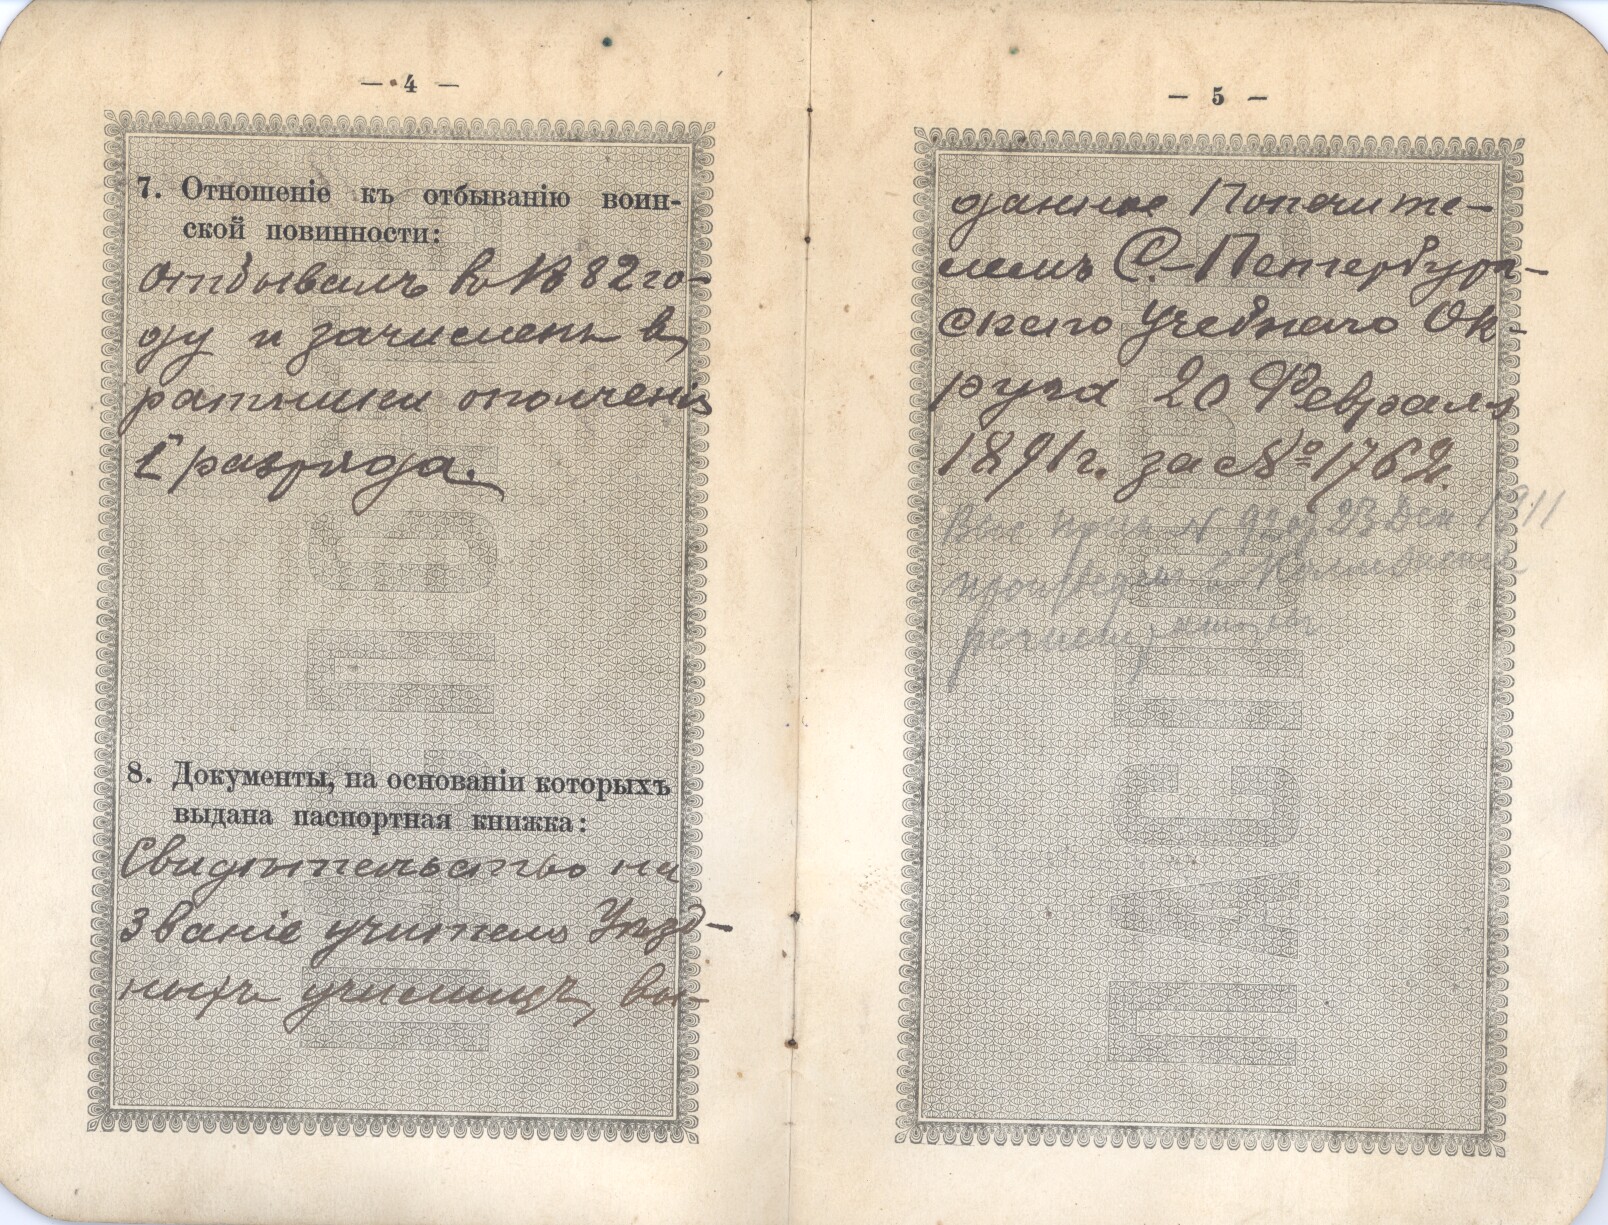 — 4 —
7. Отношеніе къ отбыванію воин-
ской повинности:
Отбывалъ въ 1882 го-
ду и зачисленъ въ
ратники ополченія
1го разряда.
8. Документы, на основаніи которыхъ
выдана паспортная книжка:
Свидѣтельство на
званіе учителя Уѣзд-
ныхъ училищъ, вы-
— 5 —
данное Попечите-
лемъ С.-Петербург-
скаго Учебнаго Ок-
руга 20 Февраля
1891 г. за № 1762.
Выс прик N 92 от 23 Дек 1911
произведен в Коллежские
регистраторы
ПАСПОРТ
ПАСПОРТ